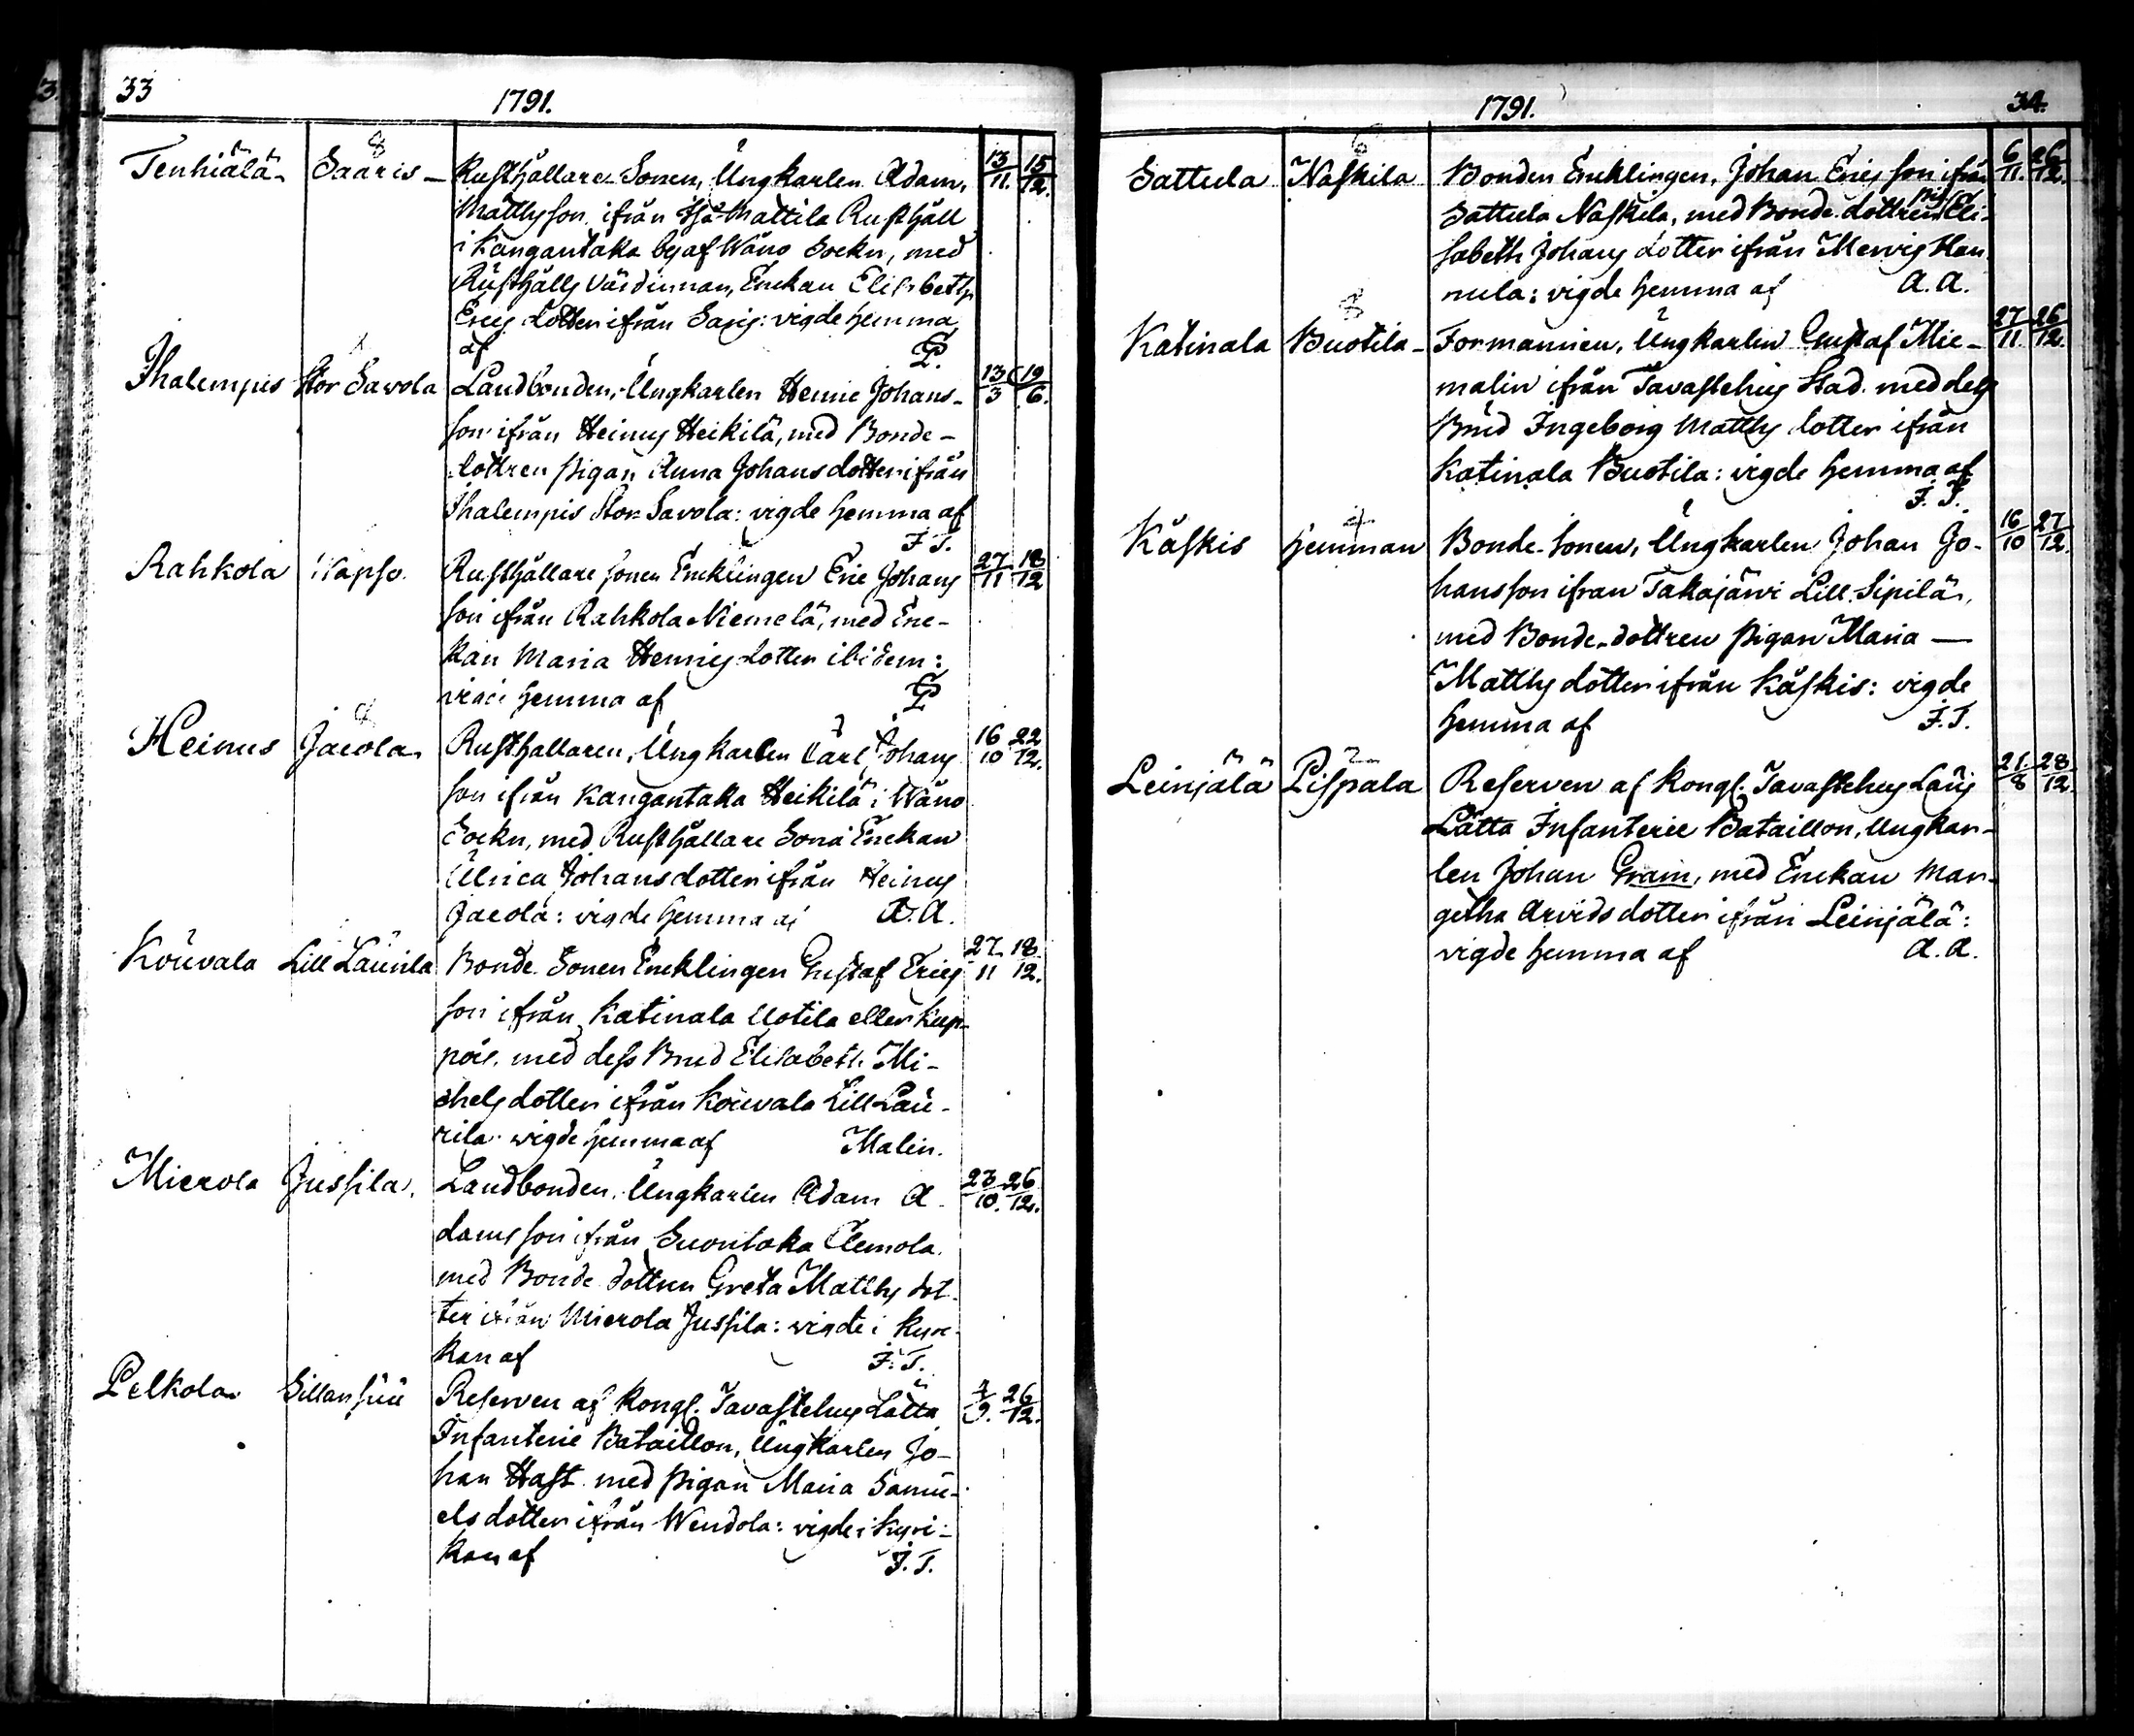 33
1791.
Tenhiälä Saaris Rusthållare Sonen, Ungkarlen Adam, 13/11. 15/12.
Mattsson ifrån Iso-Mattila Rusthåll
i Kangantaka by af Wåno Sockn, med
Rusthålls Värdinnan, Enckan Elisabeth
Erics dotter ifrån Saris: vigde hemma
af
Ihalempis Stor Savola Landbonden, Ungkarlen Henric Johans- 13/3 19/6.
son ifrån Heinus Heikilä, med Bonde-
dottren pigan Anna Johansdotter ifrån
Ihalempis Stor Savola: vigde hemma af
F. T.
Rahkola Wapso. Rusthållare sonen Encklingen Eric Johans 27/11 18/12
son ifrån Rahkola Niemelä, med Enc-
kan Maria Henrics dotter ibidem:
vigde hemma af
Heinus Jacola Rusthållaren, Ungkarlen Carl Johans 16/10 22/12.
son ifrån Kangantaka Heikilä i Wåno
Sockn, med Rusthållare Sona Enckan
Ulrica Johansdotter ifrån Heinus
Jacola: vigde hemma af A. A.
Kouvala Lill Laurila Bonde Sonen Encklingen Gustaf Erics 27/11 18/12.
son ifrån Katinala Uotila eller Kup-
pois, med dess Brud Elisabeth Mi-
chels dotter ifrån Kouvala Lill Lau-
rila: wigde hemma af Malin.
Mierola Jussila. Landbonden, Ungkarlen Adam A- 23/10. 26/12.
dams son ifrån Suontaka Clemola
med Bonde dottren Greta Matths dot-
ter ifrån Mierola Jussila: wigde i Kyrc-
kan af F. T.
Pelkola Sillansuu Reserven af Kongl. Tavastehus Lätta 4/9. 26/12.
Infanterie Bataillon, Ungkarlen Jo-
han Hast med pigan Maria Samu-
els dotter ifrån Wendola: vigde i Kyri-
kan af F. T.
1791.
34.
Sattula Naskila Bonden Encklingen, Johan Erics son ifrån 6/11. 26/12.
Sattula Naskila, med Bonde dottren pig. Eli-
sabeth Johans dotter ifrån Mervis Han
nula: vigde hemma af A. A.
Katinala Buotila Formannen, Ungkarlen Gustaf Mic- 27/11. 26/12.
malin ifrån Tavastehus Stad. med dess
Brud Ingeborg Matths dotter ifrån
Katinala Buotila: vigde hemma af
F. T.
Käskis hemman Bonde Sonen, Ungkarlen Johan Jo- 16/10 27/12.
hansson ifrån Takajärvi Lill. Sipilä,
med Bonde-dottren pigan Maria —
Matths dotter ifrån Käskis: vigde
hemma af F. T.
Leinjälä Pispala Reserven af Kongl. Tavastehus Läns 21/8 28/12.
Lätta Infanterie Bataillon, Ungkar-
len Johan Gram, med Enckan Mar-
getha Arvids dotter ifrån Leinjälä:
vigde hemma af A. A.